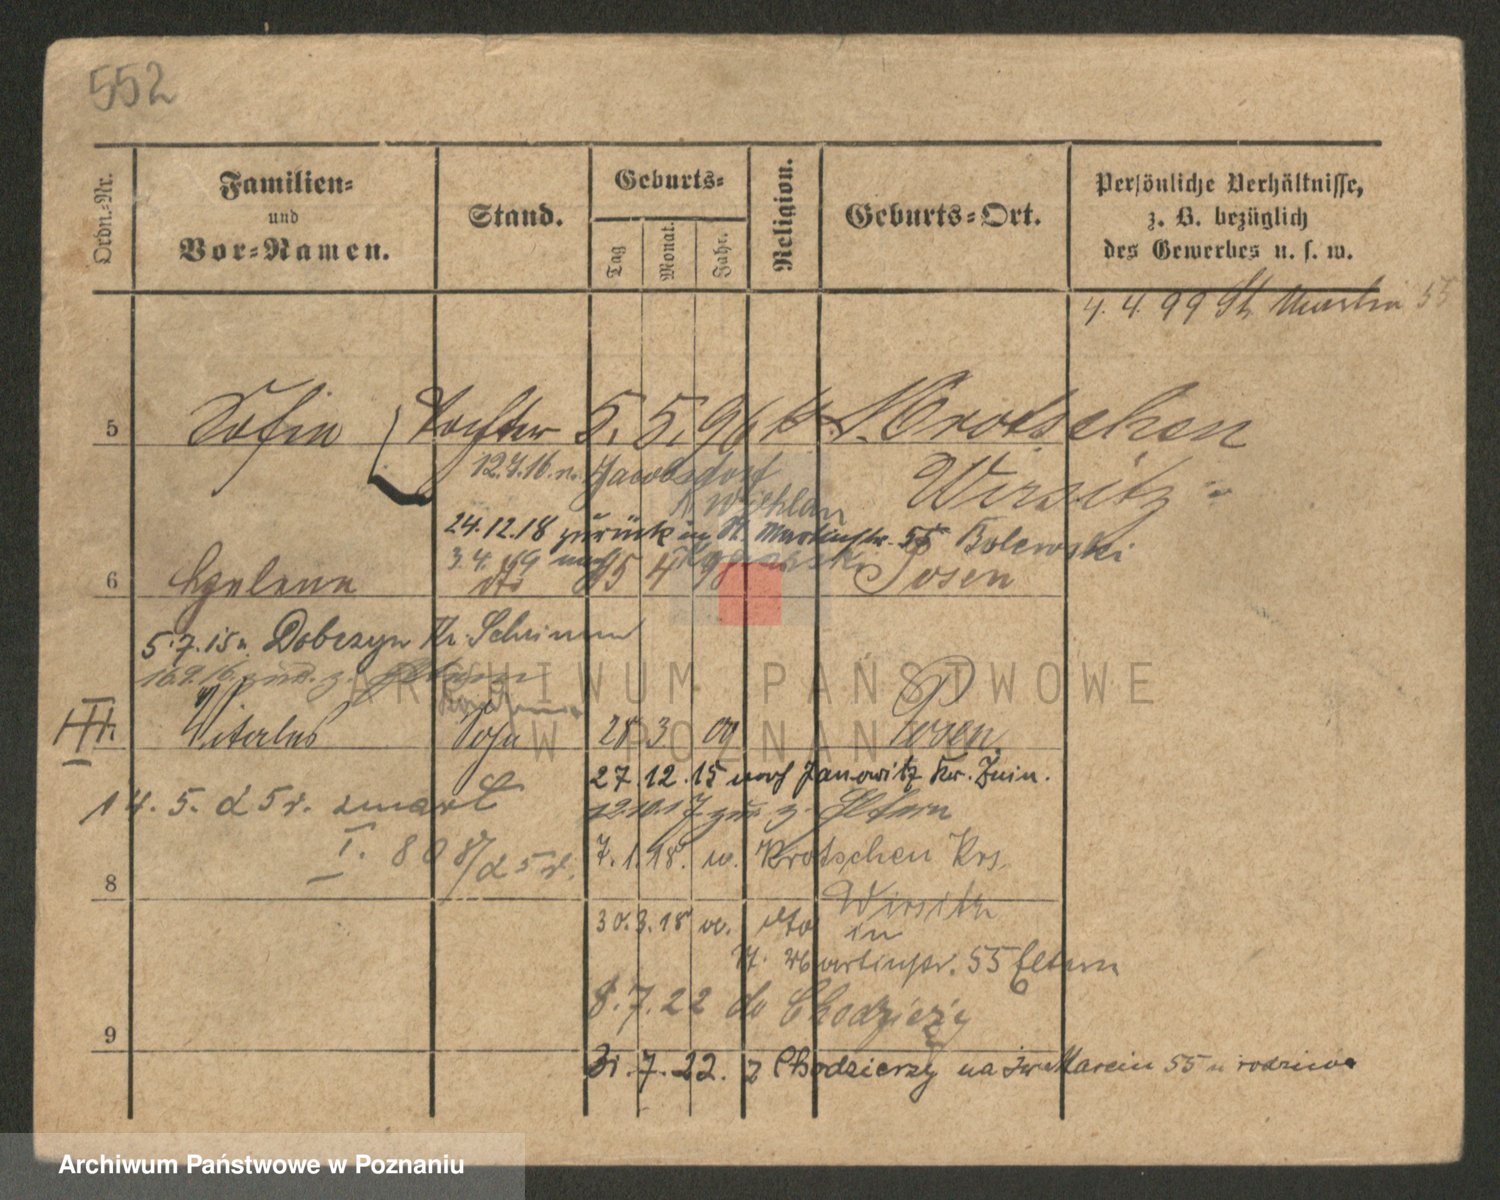 552
Ordn.-Nr.
Familien-
und
Vor-Namen.
Stand.
Geburts-
Tag
Monat.
Jahr.
Religion.
Geburts-Ort.
Persönliche Verhältnisse,
z. B. bezüglich
des Gewerbes u. s. w.
4. 4. 99 St. Martin 55
5 Sofia Tochter 5. 5. 96 k Mrotschen
12.7.16. n. Jacobsdorf Wirsitz
Wohlau
24.12.18 zurück in St. Martinstr. 55 Bolewski
3.4.19 nach
6 Helena dto 15 4 98 Posen
5.7.15 n. Dobczyn Kr. Schrimm
16.9.16 zur. z. Eltern
ARCHIWUM PAŃSTWOWE
W POZNANIU
III. Vitalus Sohn 28 3 09 Posen
27.12.15 nach Janowitz Kr. Znin.
14. 5. d 5 r. zmarł
12.10.17 zur. z. Eltern
I. 808/d 5 r.
7.1.18. n. Mrotschen Krs.
8
Wirsitz
30.3.18 v. dto in
St. Martinstr. 55 Eltern
8.7.22 do Chodzieży
9
31.7.22. z Chodzierzy na św Marcin 55 u rodziców
Archiwum Państwowe w Poznaniu